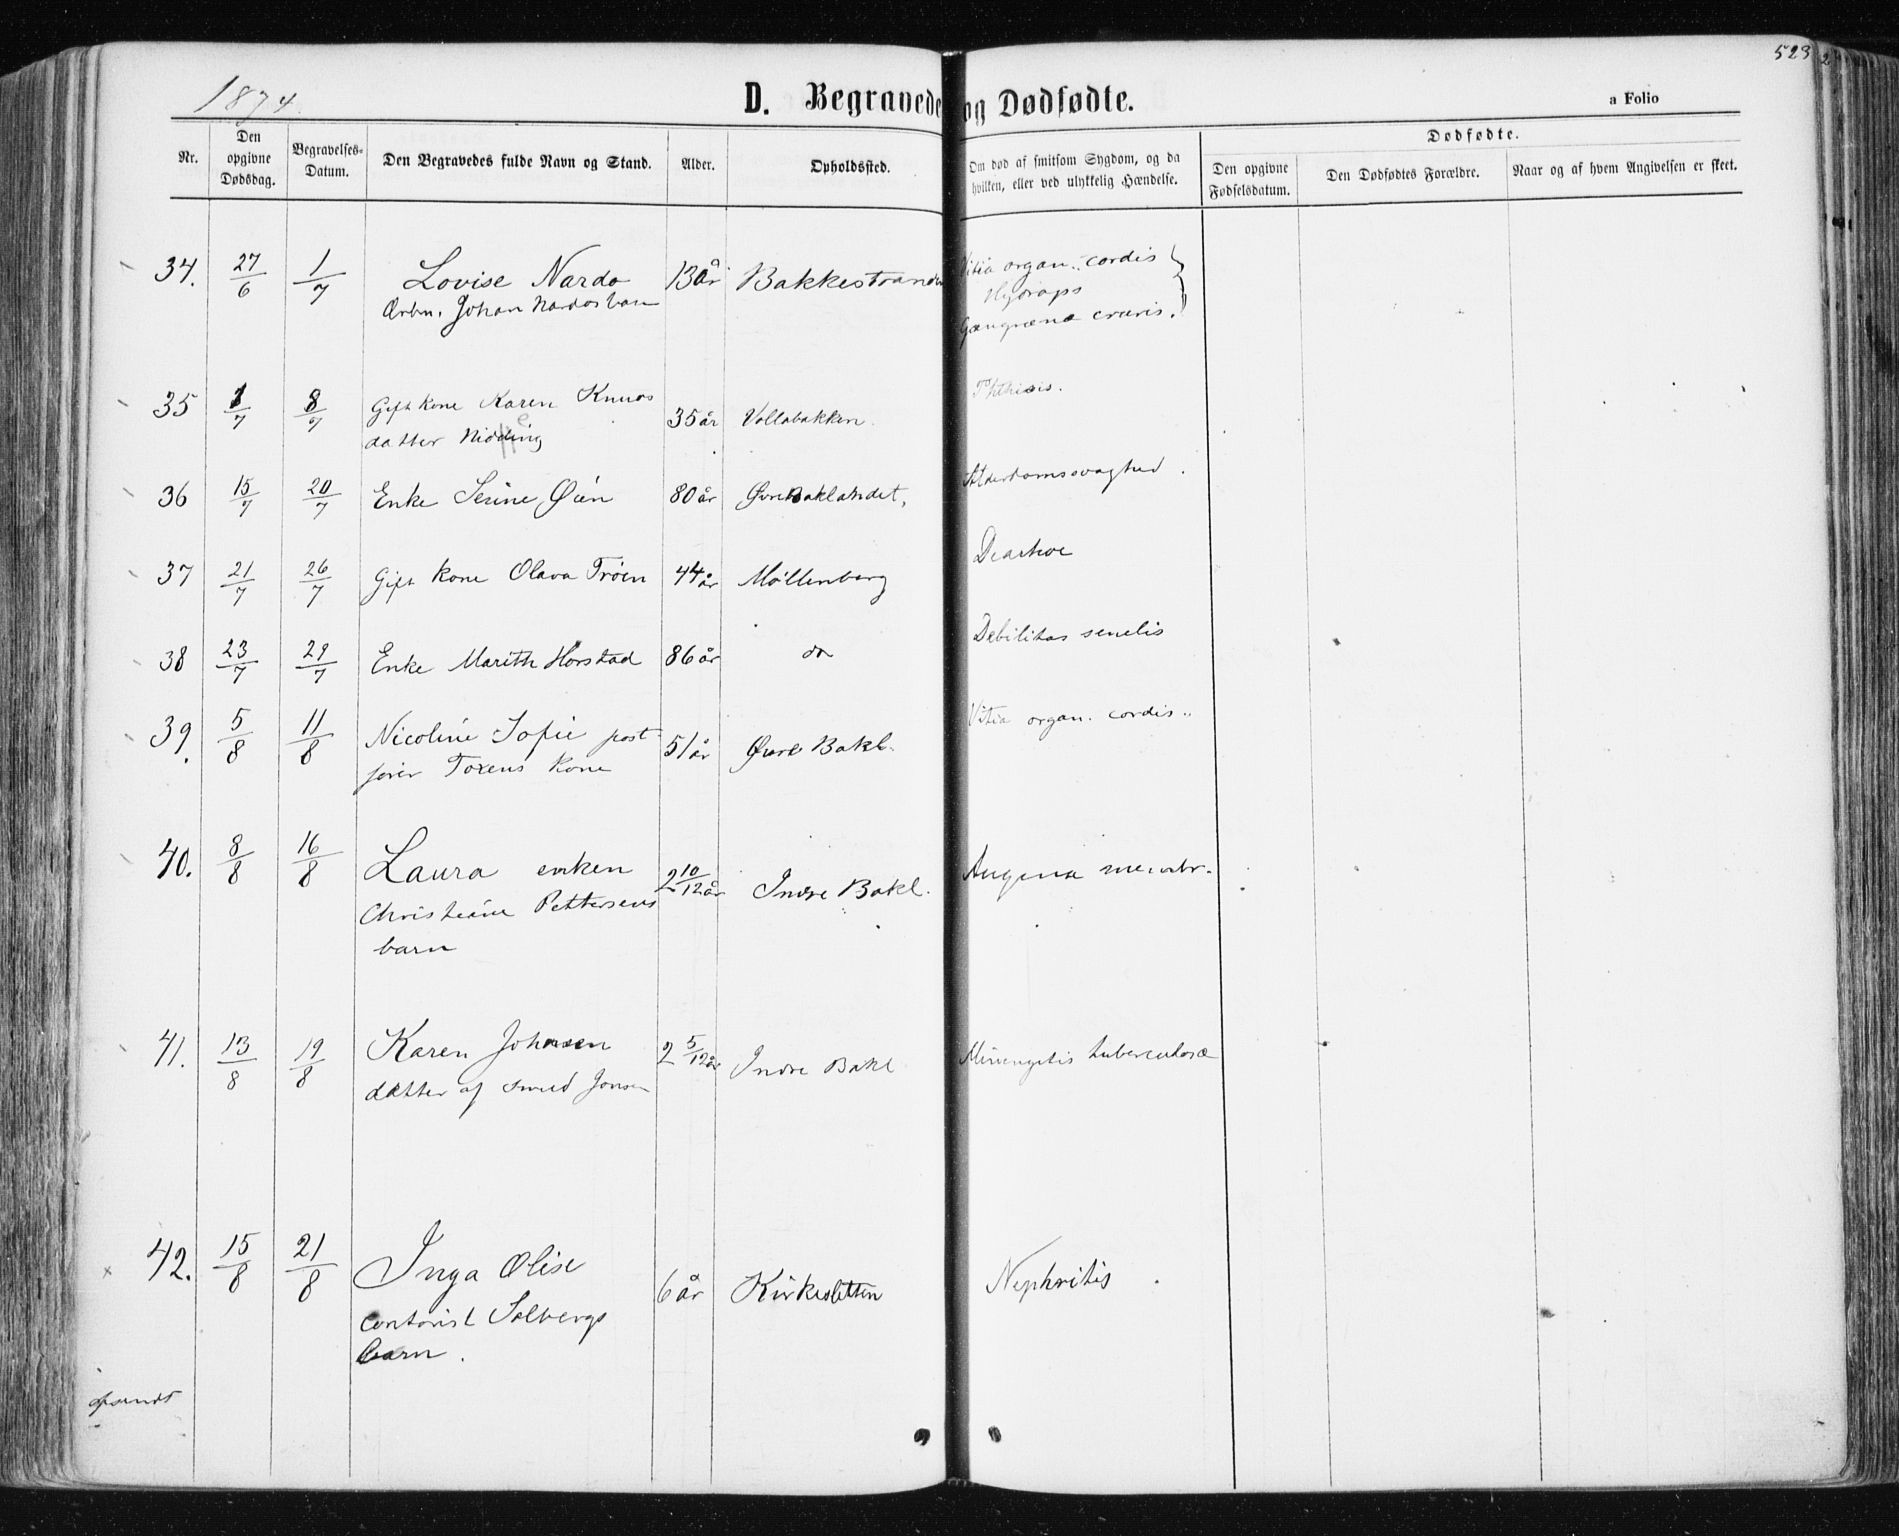 523
1874.
D. Begravede og Dødfødte.
a Folio
Nr.
Den opgivne Dødsdag.
Begravelses-Datum.
Den Begravedes fulde Navn og Stand.
Alder.
Opholdssted.
Om død af smitsom Sygdom, og da hvilken, eller ved ulykkelig Hændelse.
Dødfødte.
Den opgivne Fødselsdatum.
Den Dødfødtes Forældre.
Naar og af hvem Angivelsen er skeet.
34. 27/6 1/7 Lovise Nardo 13 år Bakkestranden Vitia organ. cordis
Arbm. Johan Nardos barn Hydrops
Gangræna cruris.
35 1/7 8/7 Gift kone Karen Knuds 35 år Vollabakken. Phthisis.
datter
36 15/7 20/7 Enke Serine Øien 80 år Øvre Baklandet, Alderdomssvaghed.
37 21/7 26/7 Gift kone Olava Trøen 44 år Møllenberg Diarhoe
38 23/7 29/7 Enke Marith Horstad 86 år do Debilitas senelis
39. 5/8 11/8 Nicoline Sofie post- 51 år Øvre Bakl. Vitia organ. cordis.
fører Toxens kone
40. 8/8 16/8 Laura enken 2 10/12 år Indre Bakl. Angina membr.
Christiane Pettersens
barn
41. 13/8 19/8 Karen Johnsen 2 5/12 år Indre Bakl Miningitis tuberculosæ
datter af smed Jonsen
42. 15/8 21/8 Inga Olise 6 år Kirkesletten Nephritis.
contorist Solbergs
barn.
opsendt